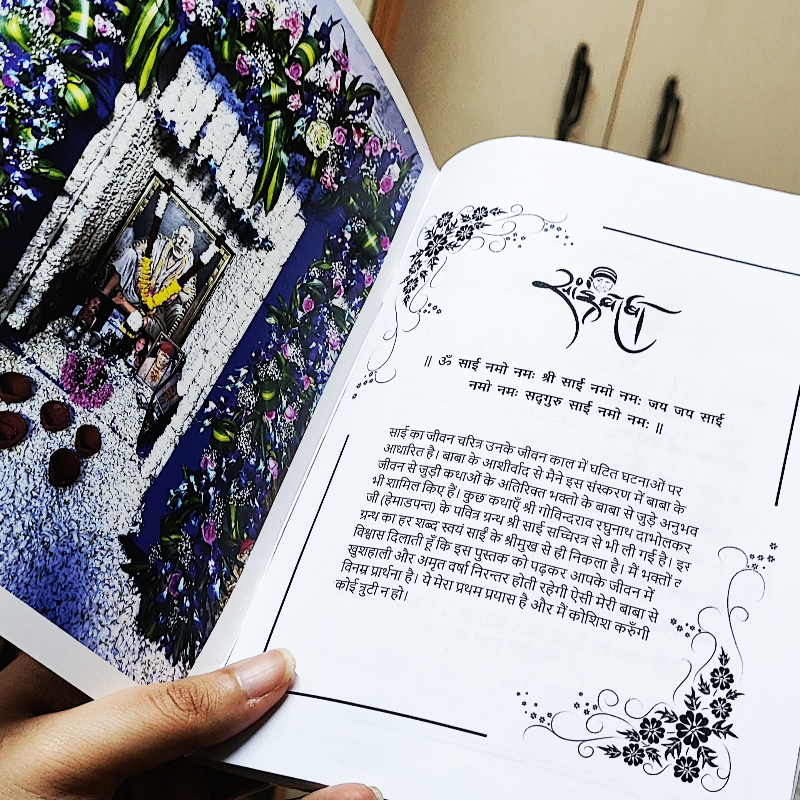 साईं बाबा
॥ ॐ साई नमो नमः श्री साई नमो नमः जय जय साई
नमो नमः सद्‌गुरु साई नमो नमः ॥
साई का जीवन चरित्र उनके जीवन काल में घटित घटनाओं पर
आधारित है। बाबा के आशीर्वाद से मैने इस संस्करण में बाबा के
जीवन से जुड़ी कथाओं के अतिरिक्त भक्तो के बाबा से जुड़े अनुभव
भी शामिल किए हैं। कुछ कथाएँ श्री गोविन्दराव रघुनाथ दाभोलकर
जी (हेमाडपन्त) के पवित्र ग्रन्थ श्री साई सच्चिरत्र से भी ली गई है। इस
ग्रन्थ का हर शब्द स्वयं साईं के श्रीमुख से ही निकला है। मैं भक्तों
विश्वास दिलाती हूँ कि इस पुस्तक को पढ़कर आपके जीवन में
खुशहाली और अमृत वर्षा निरन्तर होती रहेगी ऐसी मेरी बाबा से
विनम्र प्रार्थना है। ये मेरा प्रथम प्रयास है और मैं कोशिश करुँगी
कोई त्रुटी न हो।